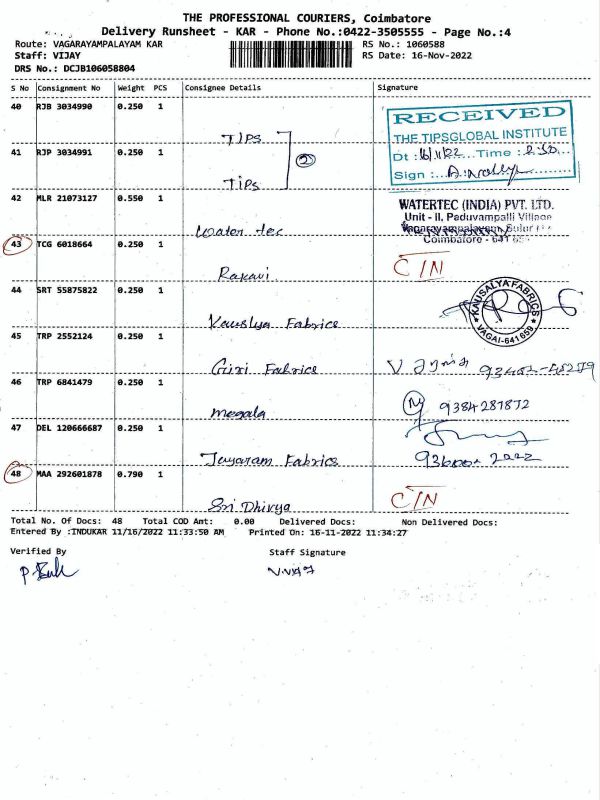 THE PROFESSIONAL COURIERS, Coimbatore
Delivery Runsheet - KAR - Phone No.:0422-3505555 - Page No.:4
Route: VAGARAYAMPALAYAM KAR RS No.: 1060588
Staff: VIJAY RS Date: 16-Nov-2022
DRS No.: DCJB106058804
S No Consignment No Weight PCS Consignee Details Signature
40 RJB 3034990 0.250 1
TIPS
RECEIVED
THE TIPSGLOBAL INSTITUTE
Dt : 16/11/22 Time : 2:30
Sign :
41 RJP 3034991 0.250 1
TiPs
2
42 MLR 21073127 0.550 1
Water tec
WATERTEC (INDIA) PVT. LTD.
Unit - II, Paduvampalli Village
Vagarayampalayam, Sulur
Coimbatore - 641
43 TCG 6018664 0.250 1
Rakavi
C/N
44 SRT 55875822 0.250 1
Kauslya Fabrice
KAUSALYA FABRICS
VAGAI-641659
45 TRP 2552124 0.250 1
Giri Fabrice
46 TRP 6841479 0.250 1
megala
9384287872
47 DEL 120666687 0.250 1
Jayaram Fabrics
48 MAA 292601878 0.790 1
Sri Dhivya
C/N
Total No. Of Docs: 48 Total COD Amt: 0.00 Delivered Docs: Non Delivered Docs:
Entered By :INDUKAR 11/16/2022 11:33:50 AM Printed On: 16-11-2022 11:34:27
Verified By Staff Signature